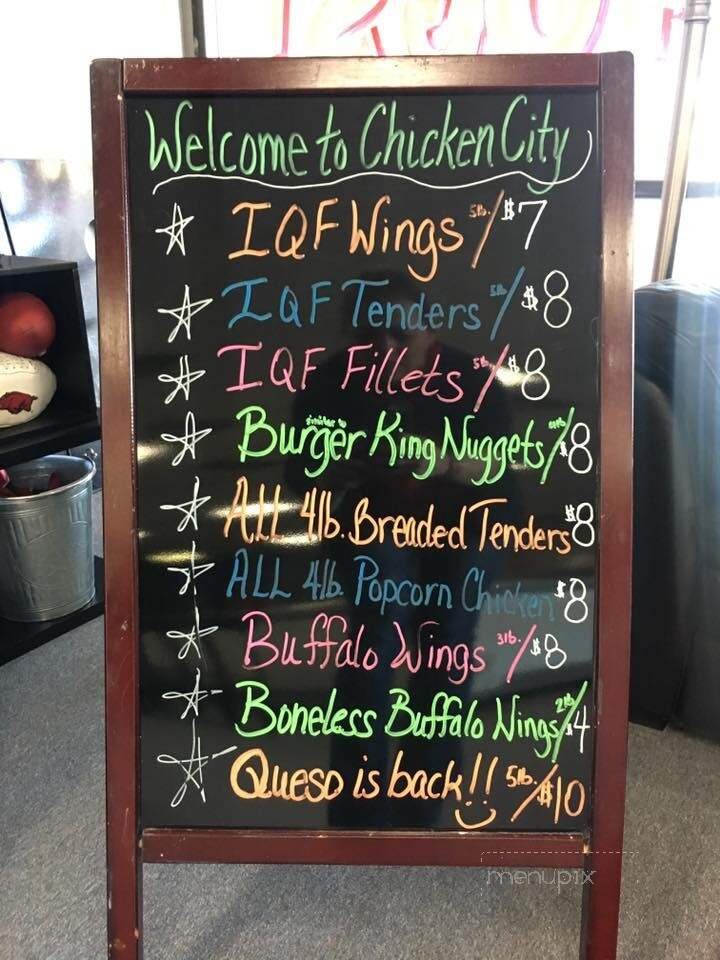 Welcome to Chicken City
IQF Wings 5lb. / $7
IQF Tenders 5lb. / $8
IQF Fillets 5lb. / $8
similar to
Burger King Nuggets / $8
ALL 4lb. Breaded Tenders $8
ALL 4lb. Popcorn Chicken $8
Buffalo Wings 3lb. / $8
Boneless Buffalo Wings 2lb / $4
Queso is back!! 5lb. / $10
menupix